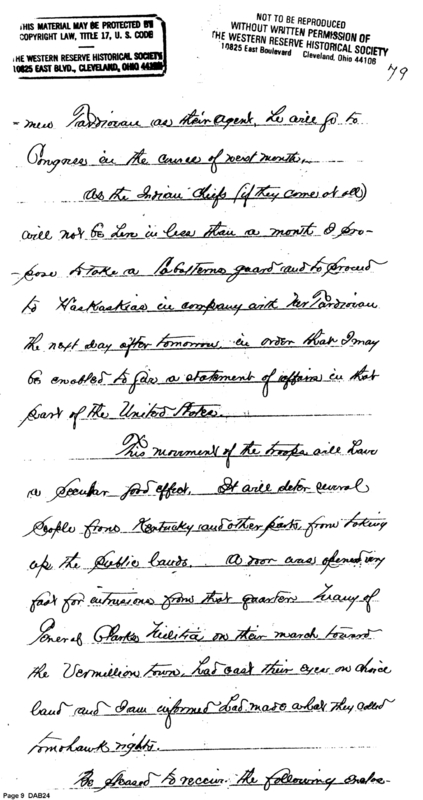 THIS MATERIAL MAY BE PROTECTED BY
COPYRIGHT LAW, TITLE 17, U. S. CODE
THE WESTERN RESERVE HISTORICAL SOCIETY
10825 EAST BLVD., CLEVELAND, OHIO 44106
NOT TO BE REPRODUCED
WITHOUT WRITTEN PERMISSION OF
THE WESTERN RESERVE HISTORICAL SOCIETY
10825 East Boulevard Cleveland, Ohio 44106
79
- mew Tardiveau as their agent, he will go to
Congress in the course of next month.
As the Indian Chiefs (if they come at all)
will not be here in less than a month I pro-
-pose to take a subalterns guard and to proceed
to Kaskaskias in company with Mr Tardiveau
the next day after tomorrow in order that I may
be enabled to give a statement of affairs in that
part of the United States.
This movement of the troops will have
a peculiar good effect. It will deter several
people from Kentucky and other parts from taking
up the public lands. A door was opened very
fast for intrusions from that quarter. Many of
General Clarks Militia on their march toward
the Vermillion town, had cast their eyes on choice
land and I am informed had made what they called
tomohawk rights.
Be pleased to receive the following enclo-
Page 9 DAB24